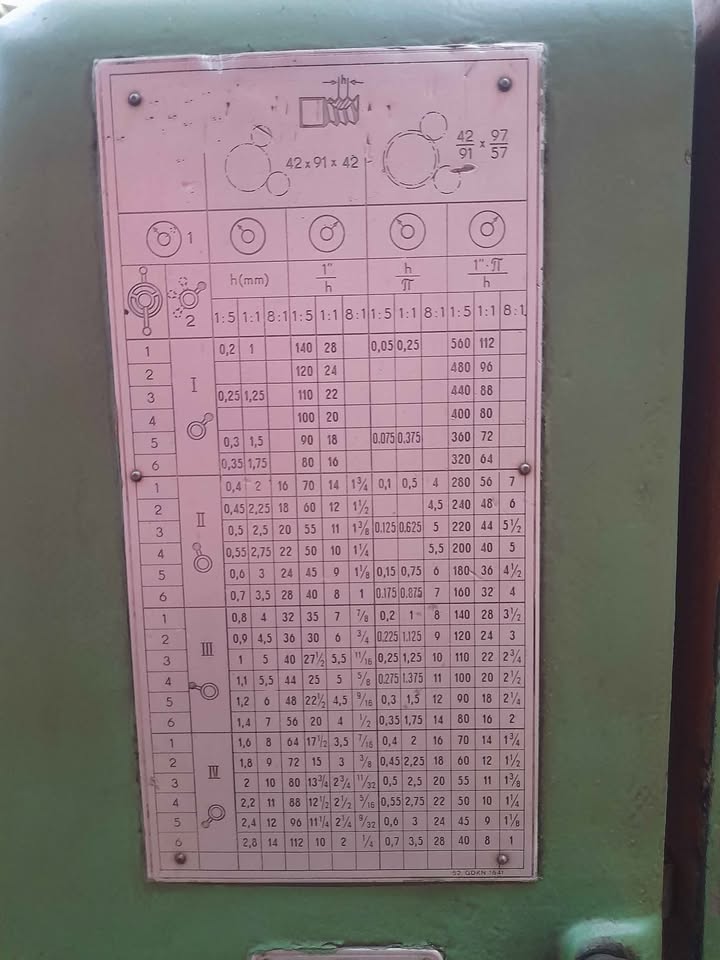 h
42 x 91 x 42
42/91 x 97/57
1
h(mm) 1"/h h/π 1"·π/h
2
1:5 1:1 8:1 1:5 1:1 8:1 1:5 1:1 8:1 1:5 1:1 8:1
I
1 0,2 1 140 28 0,05 0,25 560 112
2 120 24 480 96
3 0,25 1,25 110 22 440 88
4 100 20 400 80
5 0,3 1,5 90 18 0.075 0.375 360 72
6 0,35 1,75 80 16 320 64
II
1 0,4 2 16 70 14 1 3/4 0,1 0,5 4 280 56 7
2 0,45 2,25 18 60 12 1 1/2 4,5 240 48 6
3 0,5 2,5 20 55 11 1 3/8 0.125 0.625 5 220 44 5 1/2
4 0,55 2,75 22 50 10 1 1/4 5,5 200 40 5
5 0,6 3 24 45 9 1 1/8 0,15 0,75 6 180 36 4 1/2
6 0,7 3,5 28 40 8 1 0.175 0.875 7 160 32 4
III
1 0,8 4 32 35 7 7/8 0,2 1 8 140 28 3 1/2
2 0,9 4,5 36 30 6 3/4 0.225 1.125 9 120 24 3
3 1 5 40 27 1/2 5,5 11/16 0,25 1,25 10 110 22 2 3/4
4 1,1 5,5 44 25 5 5/8 0.275 1.375 11 100 20 2 1/2
5 1,2 6 48 22 1/2 4,5 9/16 0,3 1,5 12 90 18 2 1/4
6 1,4 7 56 20 4 1/2 0,35 1,75 14 80 16 2
IV
1 1,6 8 64 17 1/2 3,5 7/16 0,4 2 16 70 14 1 3/4
2 1,8 9 72 15 3 3/8 0,45 2,25 18 60 12 1 1/2
3 2 10 80 13 3/4 2 3/4 11/32 0,5 2,5 20 55 11 1 3/8
4 2,2 11 88 12 1/2 2 1/2 5/16 0,55 2,75 22 50 10 1 1/4
5 2,4 12 96 11 1/4 2 1/4 9/32 0,6 3 24 45 9 1 1/8
6 2,8 14 112 10 2 1/4 0,7 3,5 28 40 8 1